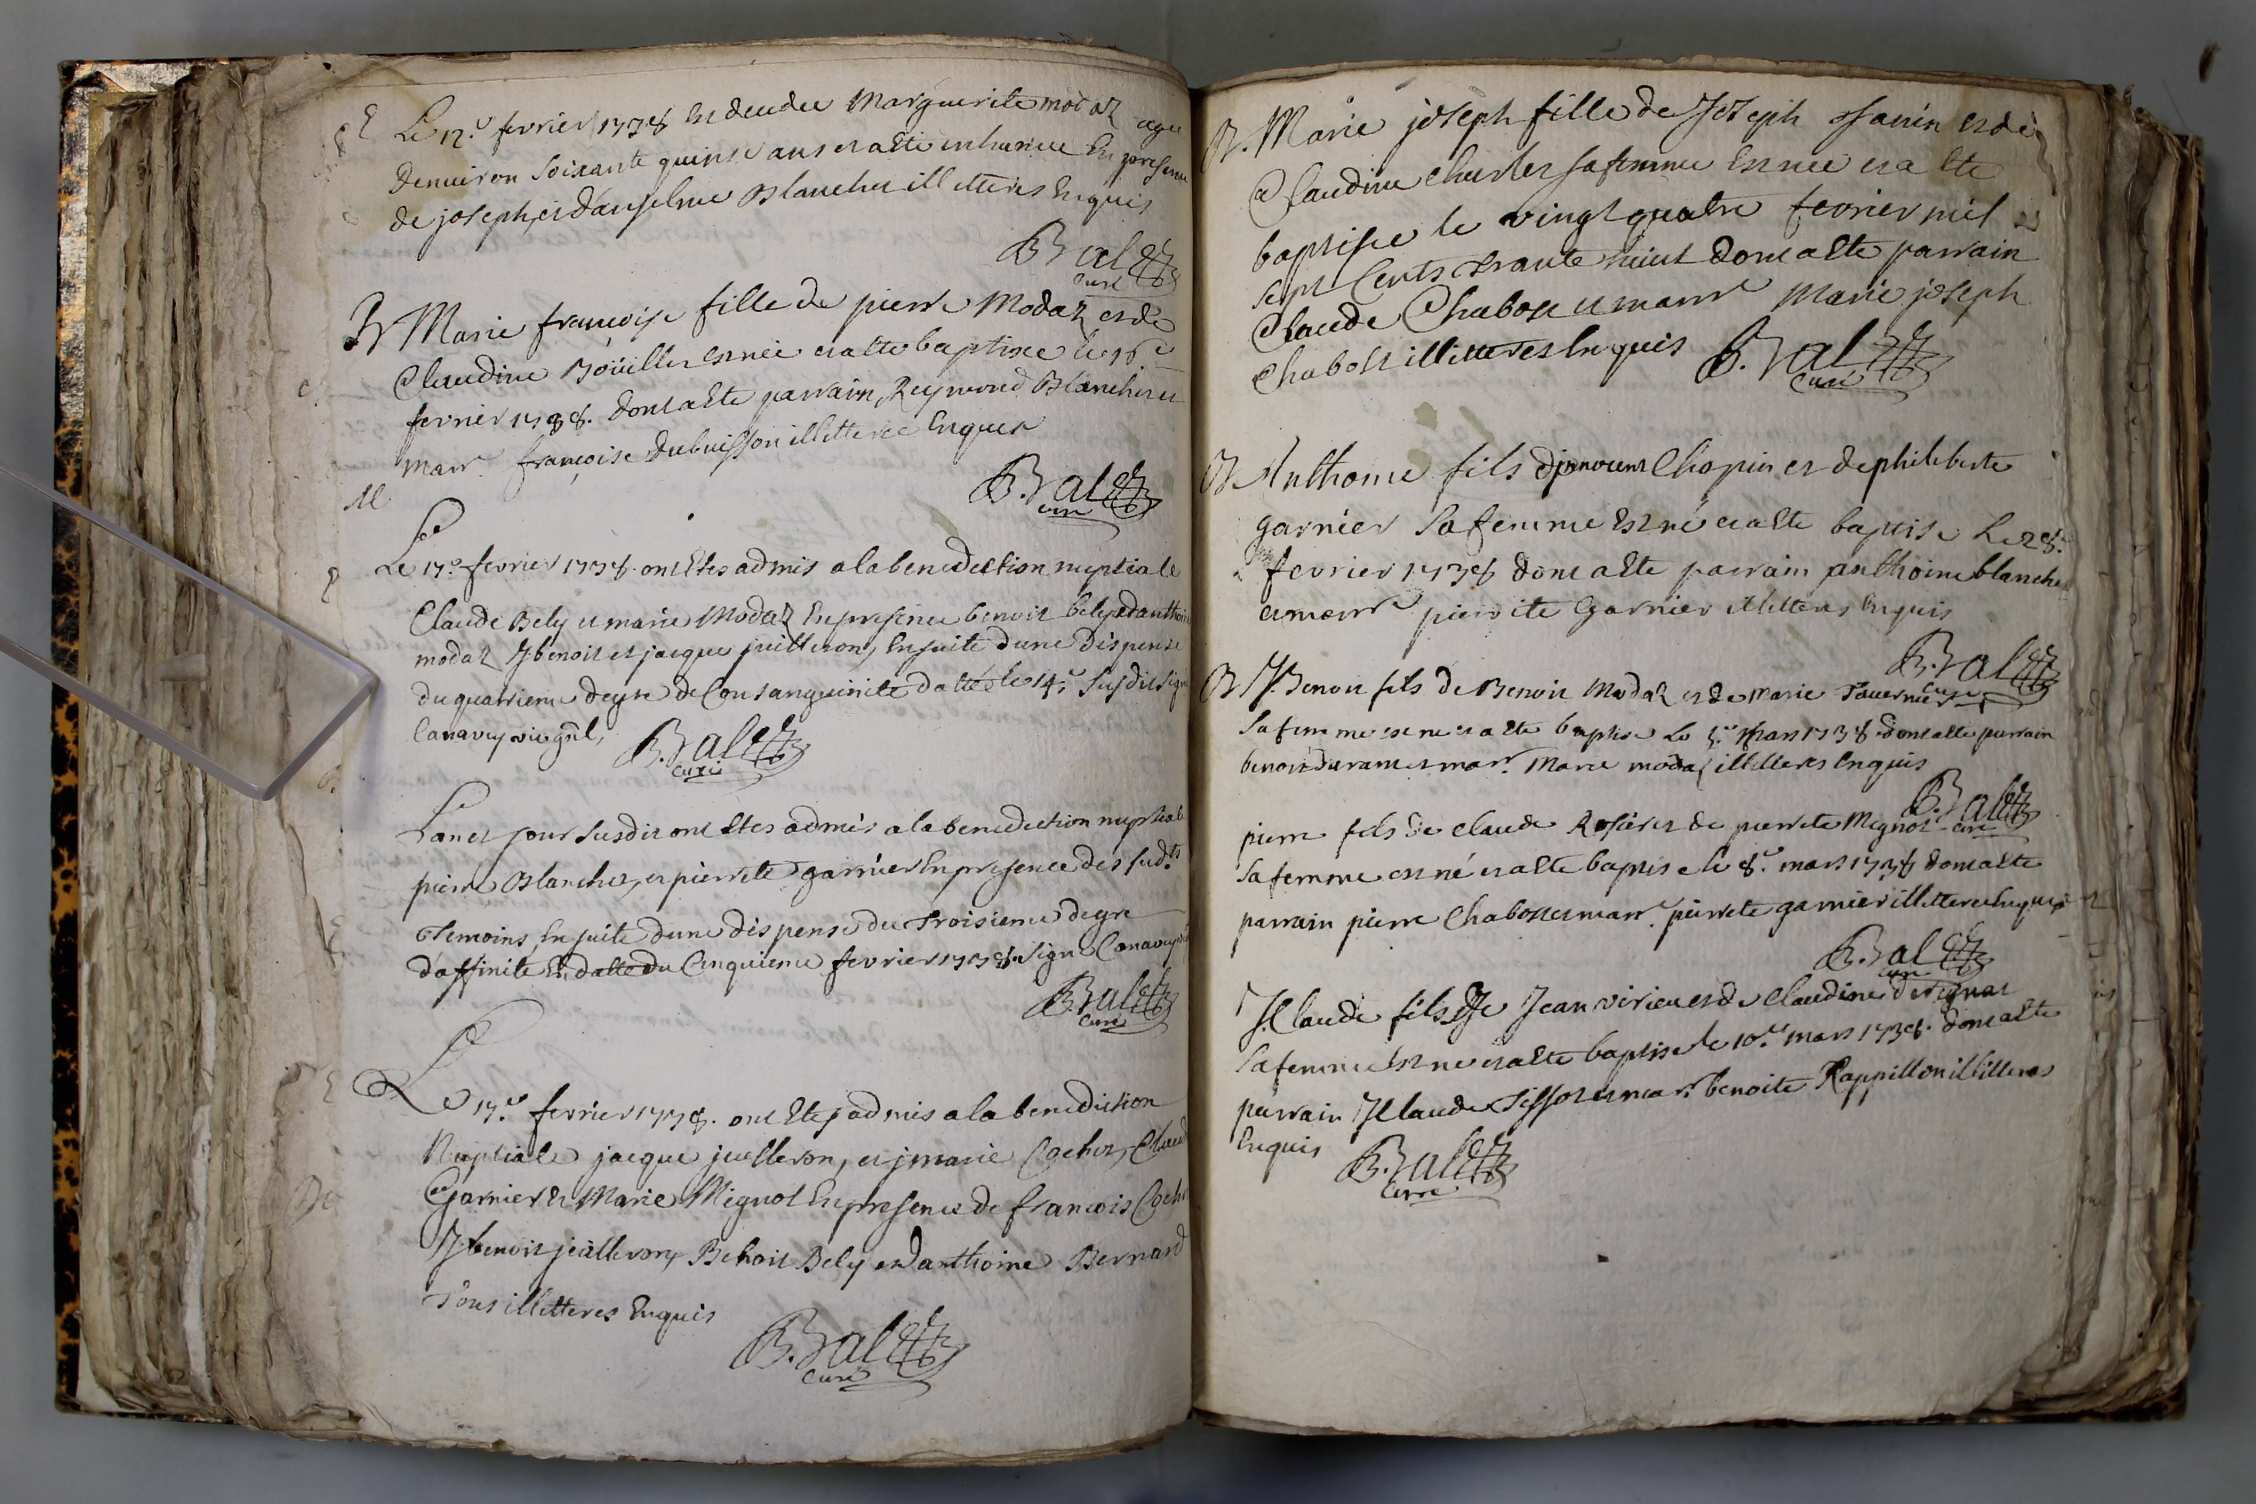 Le 12.e fevrier 1738 Est decedee Marguerite modaz agee
denuiron soixante quinse ans et a ette inhumee En presence
de joseph, et d'anselme Blanchet illetteres Enquis
B. Balet
curé
B Marie françoise fille de pierre Modaz et de
Claudine Boüiller est née et a ette baptisee le 16e
fevrier 1738. dont a ette parrain, Reymond Blanchet et
marr.e françoise dubuisson illetteree Enquis
B. Balet
curé
M
Le 17.e fevrier 1738. ont Etes admis a la benediction nuptiale
Claude Bely et marie Modaz En presence benoit bely et danthoine
modaz J. benoit et jacque juilleron, Ensuite d'une Dispense
du quatrieme degre de Consanguinite datté le 14.e susdit signé
Canavey vic gnl,
B. Balet
curé
L'an et jour susdit ont Etes admis a la benediction nuptiale
pierre Blanchet, et pierrete garnier En presence des sud.ts
temoins, Ensuite d'une dispense du troisieme degre
d'affinite En datte du Cinquieme fevrier 1738. signé Canavey
B. Balet
curé
Le 17.e fevrier 1738. ont Etes admis a la benediction
Nuptiale jacque juilleron, et jmarie Cochet, Claude
Garnier Et Marie Mignot En presence de françois Cochet
J. benoit juilleron, Benoit Bely et d'anthoine Bernard
Tous illetteres Enquis
B. Balet
curé
B. Marie joseph fille de Joseph Janin et de
Claudine charles sa femme Est nee et a Ette
baptisee le vingt quatre fevrier mil
sept Cents trante huict dont a Ette parrain
Claude Chaboü et marr.e Marie joseph
Chaboü illetteres Enquis B. Balet
curé
B Anthoine fils d'jnnocent Chopin et de philiberte
garnier sa femme Est né et a Ette baptise Le 28.e
fevrier 1738 dont a Ette parrain anthoine blanchet
et marr.e pierrete Garnier illetteres Enquis
B. Balet
curé
B J. Benoit fils de Benoit Modaz et de marie Tavernier
sa femme est né et a Ette baptise Le 5.e Mars 1738. dont a ette parrain
benoit durand et mar.e Marie modaz illetteres Enquis
B. Balet
curé
pierre fils de claude Rosier et de pierrete Mignot
sa femme est né et a Ette baptise le 8.e mars 1738 dont a Ette
parrain pierre Chabou et marr.e pierrete garnier illetteres Enquis
B. Balet
curé
J. Claude fils de Jean virieu et de Claudine
sa femme Est né et a Ette baptise le 10.e mars 1738. dont a Ette
parrain J. Claude Tissot et mar.e benoite Rappillon illetteres
Enquis
B. Balet
curé